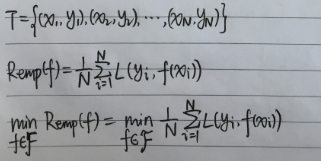 T={(x₁,y₁),(x₂,y₂),⋯,(x_N,y_N)}
Remp(f)=1/N ∑_{i=1}^{N} L(y_i,f(x_i))
min_{f∈𝓕} Remp(f)=min_{f∈𝓕} 1/N ∑_{i=1}^{N} L(y_i,f(x_i))